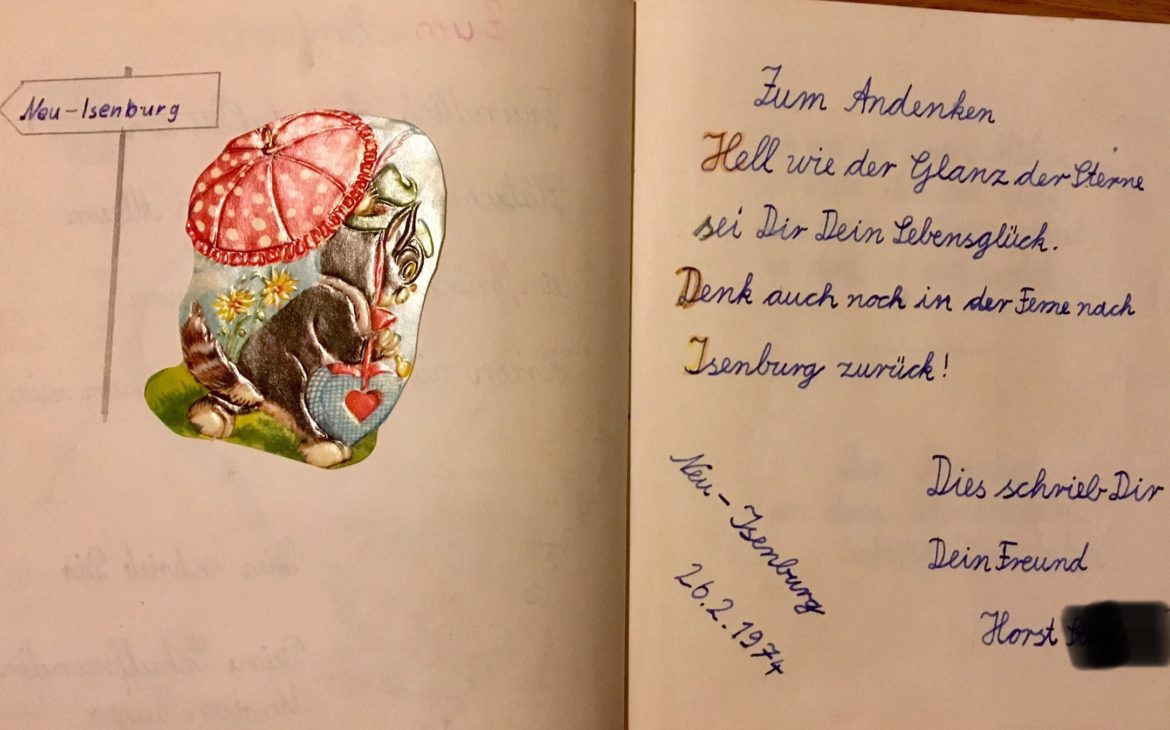 Neu-Isenburg
Zum Andenken
Hell wie der Glanz der Sterne
sei Dir Dein Lebensglück.
Denk auch noch in der Ferne nach
Isenburg zurück!
Neu-Isenburg
26.2.1974
Dies schrieb Dir
Dein Freund
Horst